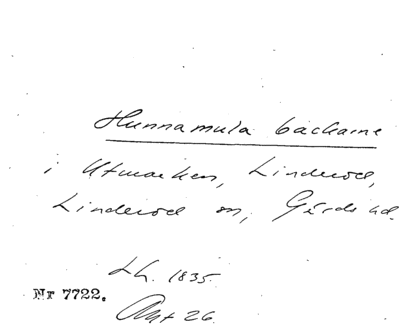 Hunnamula backarne
i Utmarken, Linderöd,
Linderöd sn, Gärds hd.
Lh. 1835.
Nr 7722.
Akt 26